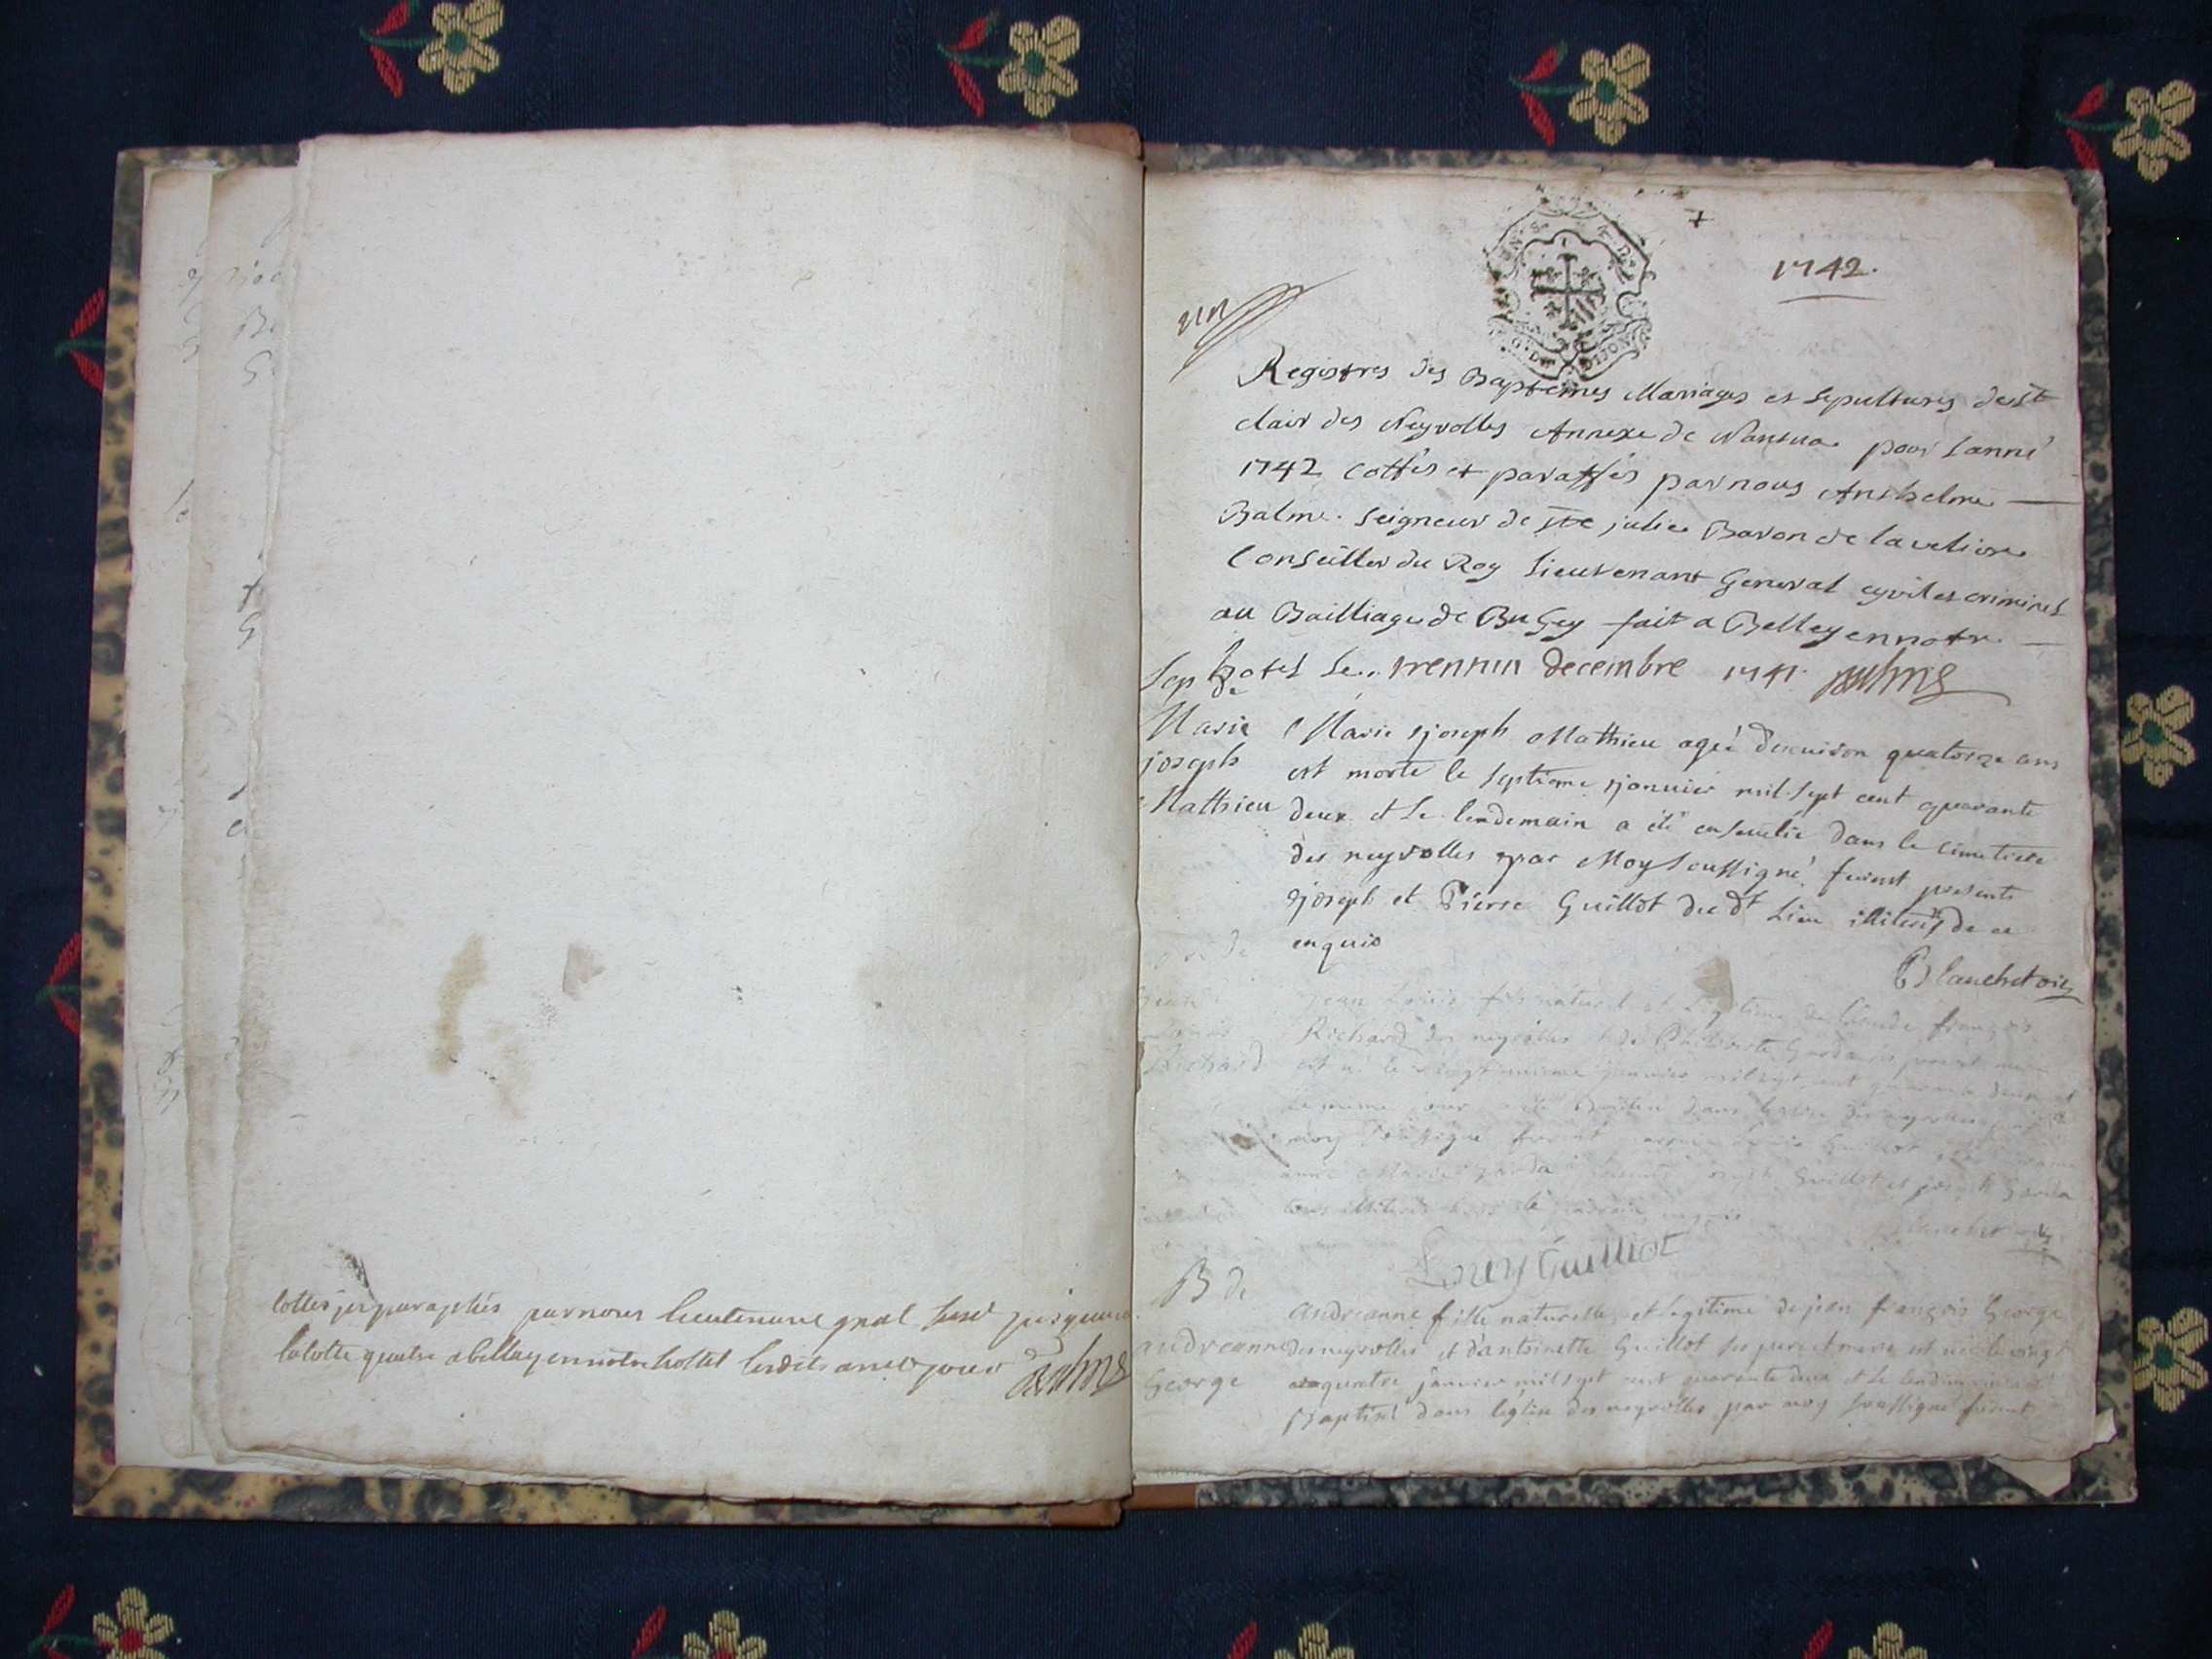 Cottés et paraphés par nous lieutenant gnal susd jusques a
la cotte quatre a belley en notre hostel lesdits an et jour Balme
un
1742.
DIJON
Registres des Baptemes Mariages et sepultures de st
clair des Neyrolles Annexe de Nantua pour Lanné
1742 cottés et paraffés par nous Anthelme
Balme seigneur de ste julie Baron de la
Conseiller du Roy Lieutenant General cyvil et criminel
au Bailliage de Bugey fait a Belley en notre
hotel Le trent un decembre 1741 Balme
Sep de
Marie
joseph
Mathieu
Marie joseph Mathieu ageé d'environ quatorze ans
est morte le septieme janvier mil sept cent quarante
deux et Le lendemain a été ensevelie dans le cimetiere
des neyrolles par Moy soussigné furent presents
joseph et Pierre Guillot du dt Lieu illiteres de ce
enquis
Blanchet vic
jean
Louis
Richard
jean Louis fils naturel et Legitime de Claude françois
Richard des neyrolles et de Garda ses pere et mere
est né le vingtunieme janvier mil sept cent quarante deux et
Le meme jour a été Baptisé dans leglise des neyrolles par
moy soussigné furent parrain Louis Guillot et marraine
anne Marie Garda presents joseph Guillot et joseph Garda
tous illiteres hors le parrain enquis
Blanchet vic
Louy Guilliot
B de
andreanne
George
andreanne fille naturelle et Legitime de jean françois George
des neyrolles et d'antoinette Guillot ses pere et mere est neé le vingt
quatre janvier mil sept cent quarante deux et Le lendemain a été
Baptiseé dans leglise des neyrolles par moy soussigné furent